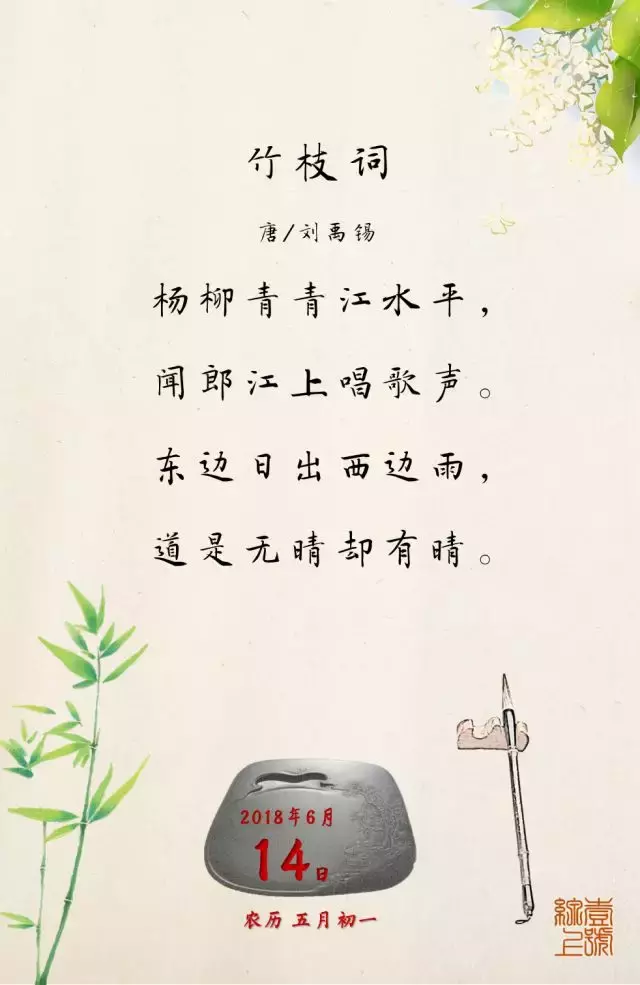 竹枝词
唐/刘禹锡
杨柳青青江水平，
闻郎江上唱歌声。
东边日出西边雨，
道是无晴却有晴。
2018年6月
14日
农历 五月初一
壹號